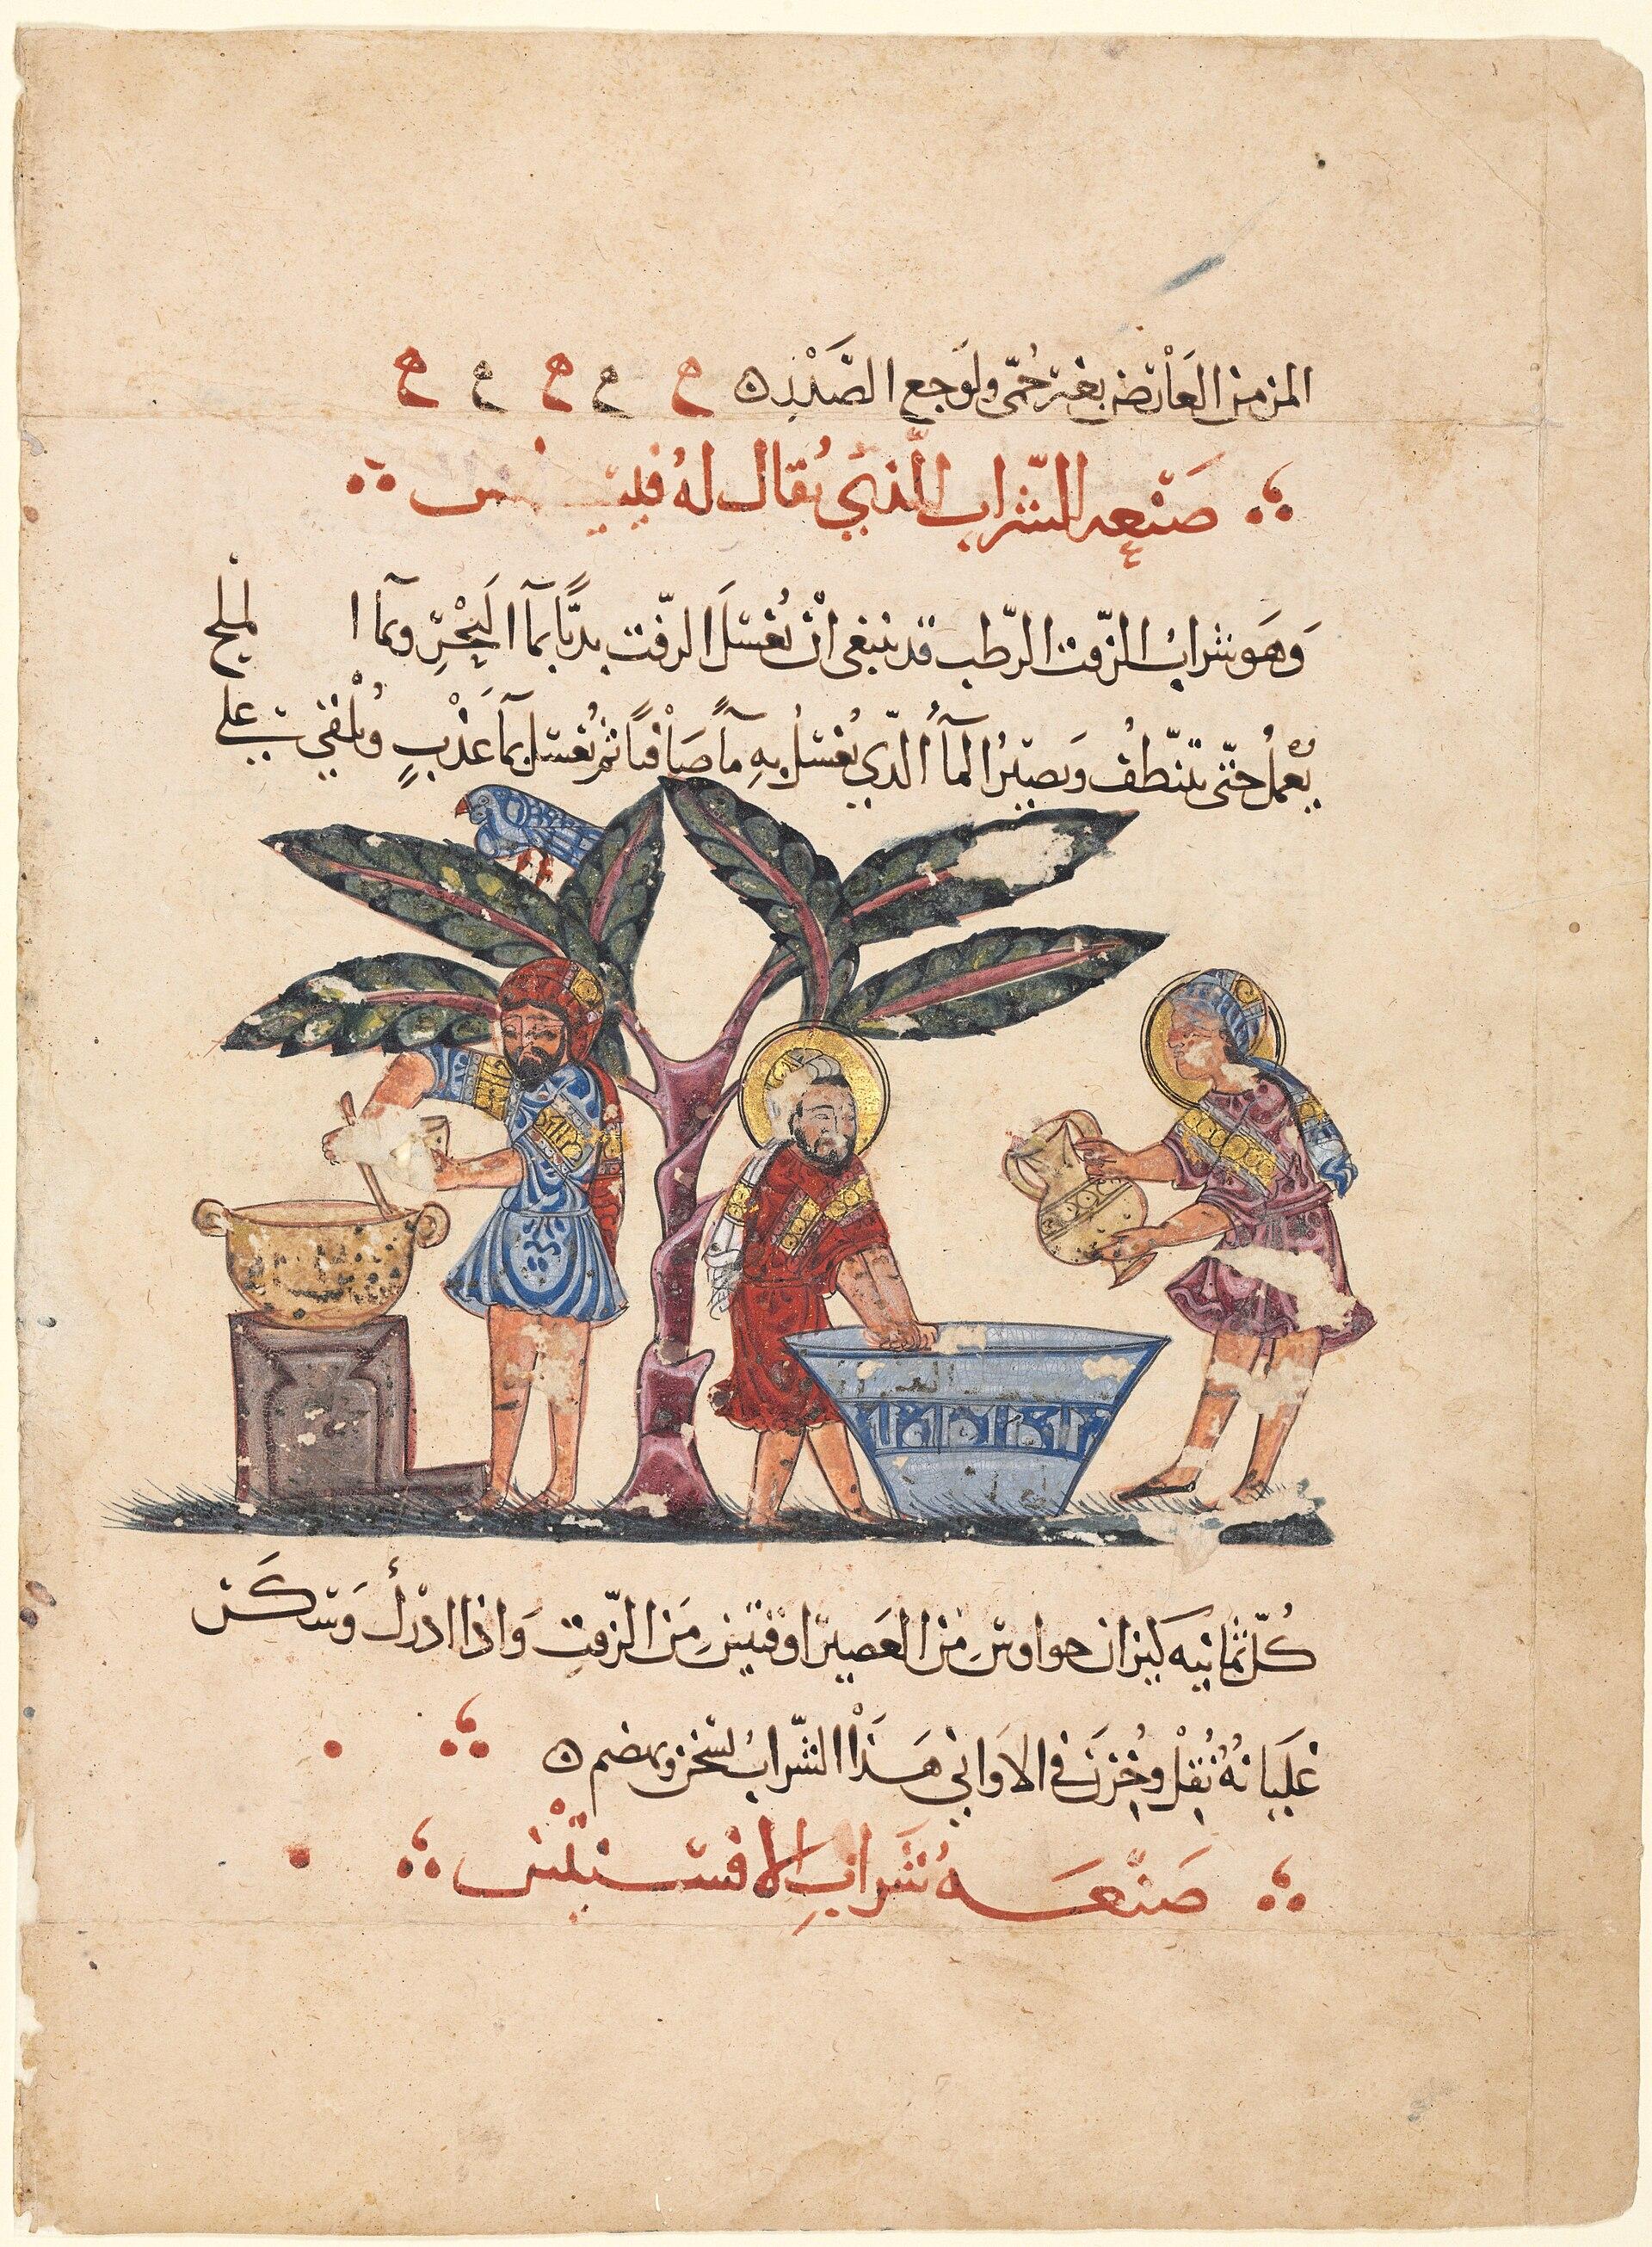 المزمن العارض بغير حمّى ولوجع الصّدر ه م م م م م
صَنْعه الشّراب الّذي يُقال لهُ
وَهَو شرابُ الزّفت الرّطب قد ينبغى انْ يُغْسَلَ الزفت بديًّا بمآ البَحْرِ وبمآ الملح
يُعمل حتّى يتنّطفُ وَيصيرُ المآُ الذّي يُغْسَلُ بهِ مآً صَافياً ثم يُغسَل بمآ عَذْبٍ وُيلْقي على
كُلّ ثمانيه كيزان من العَصير اوقتينِ مَن الزّفتِ وَاذا ادْرَك وَسَكَن
غَلَيانهُ نُقِلْ وخُزِنَ في الاوَاني هَذَا الشّرابُ يسخن ويهضم ه
صَنْعَهُ شَرابِ الافسنتين